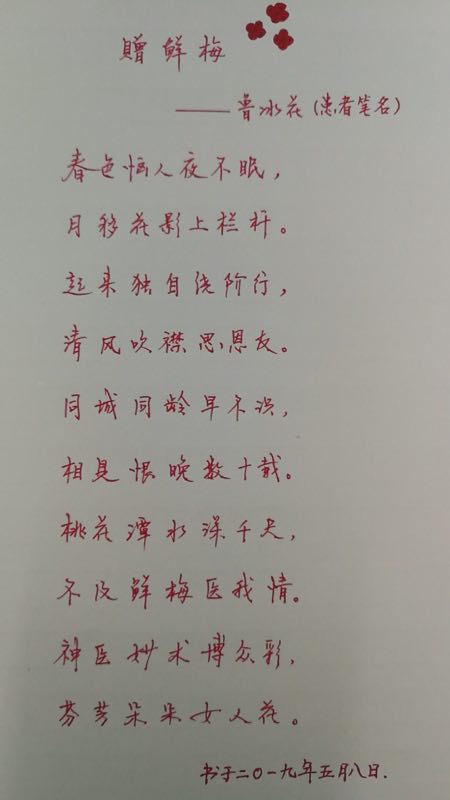 赠鲜梅
——鲁冰花(患者笔名)
春色恼人夜不眠,
月移花影上栏杆。
起来独自绕阶行,
清风吹襟思恩友。
同城同龄早不识,
相见恨晚数十载。
桃花潭水深千尺,
不及鲜梅医我情。
神医妙术博众彩,
芬芳朵朵女人花。
书于二〇一九年五月八日.